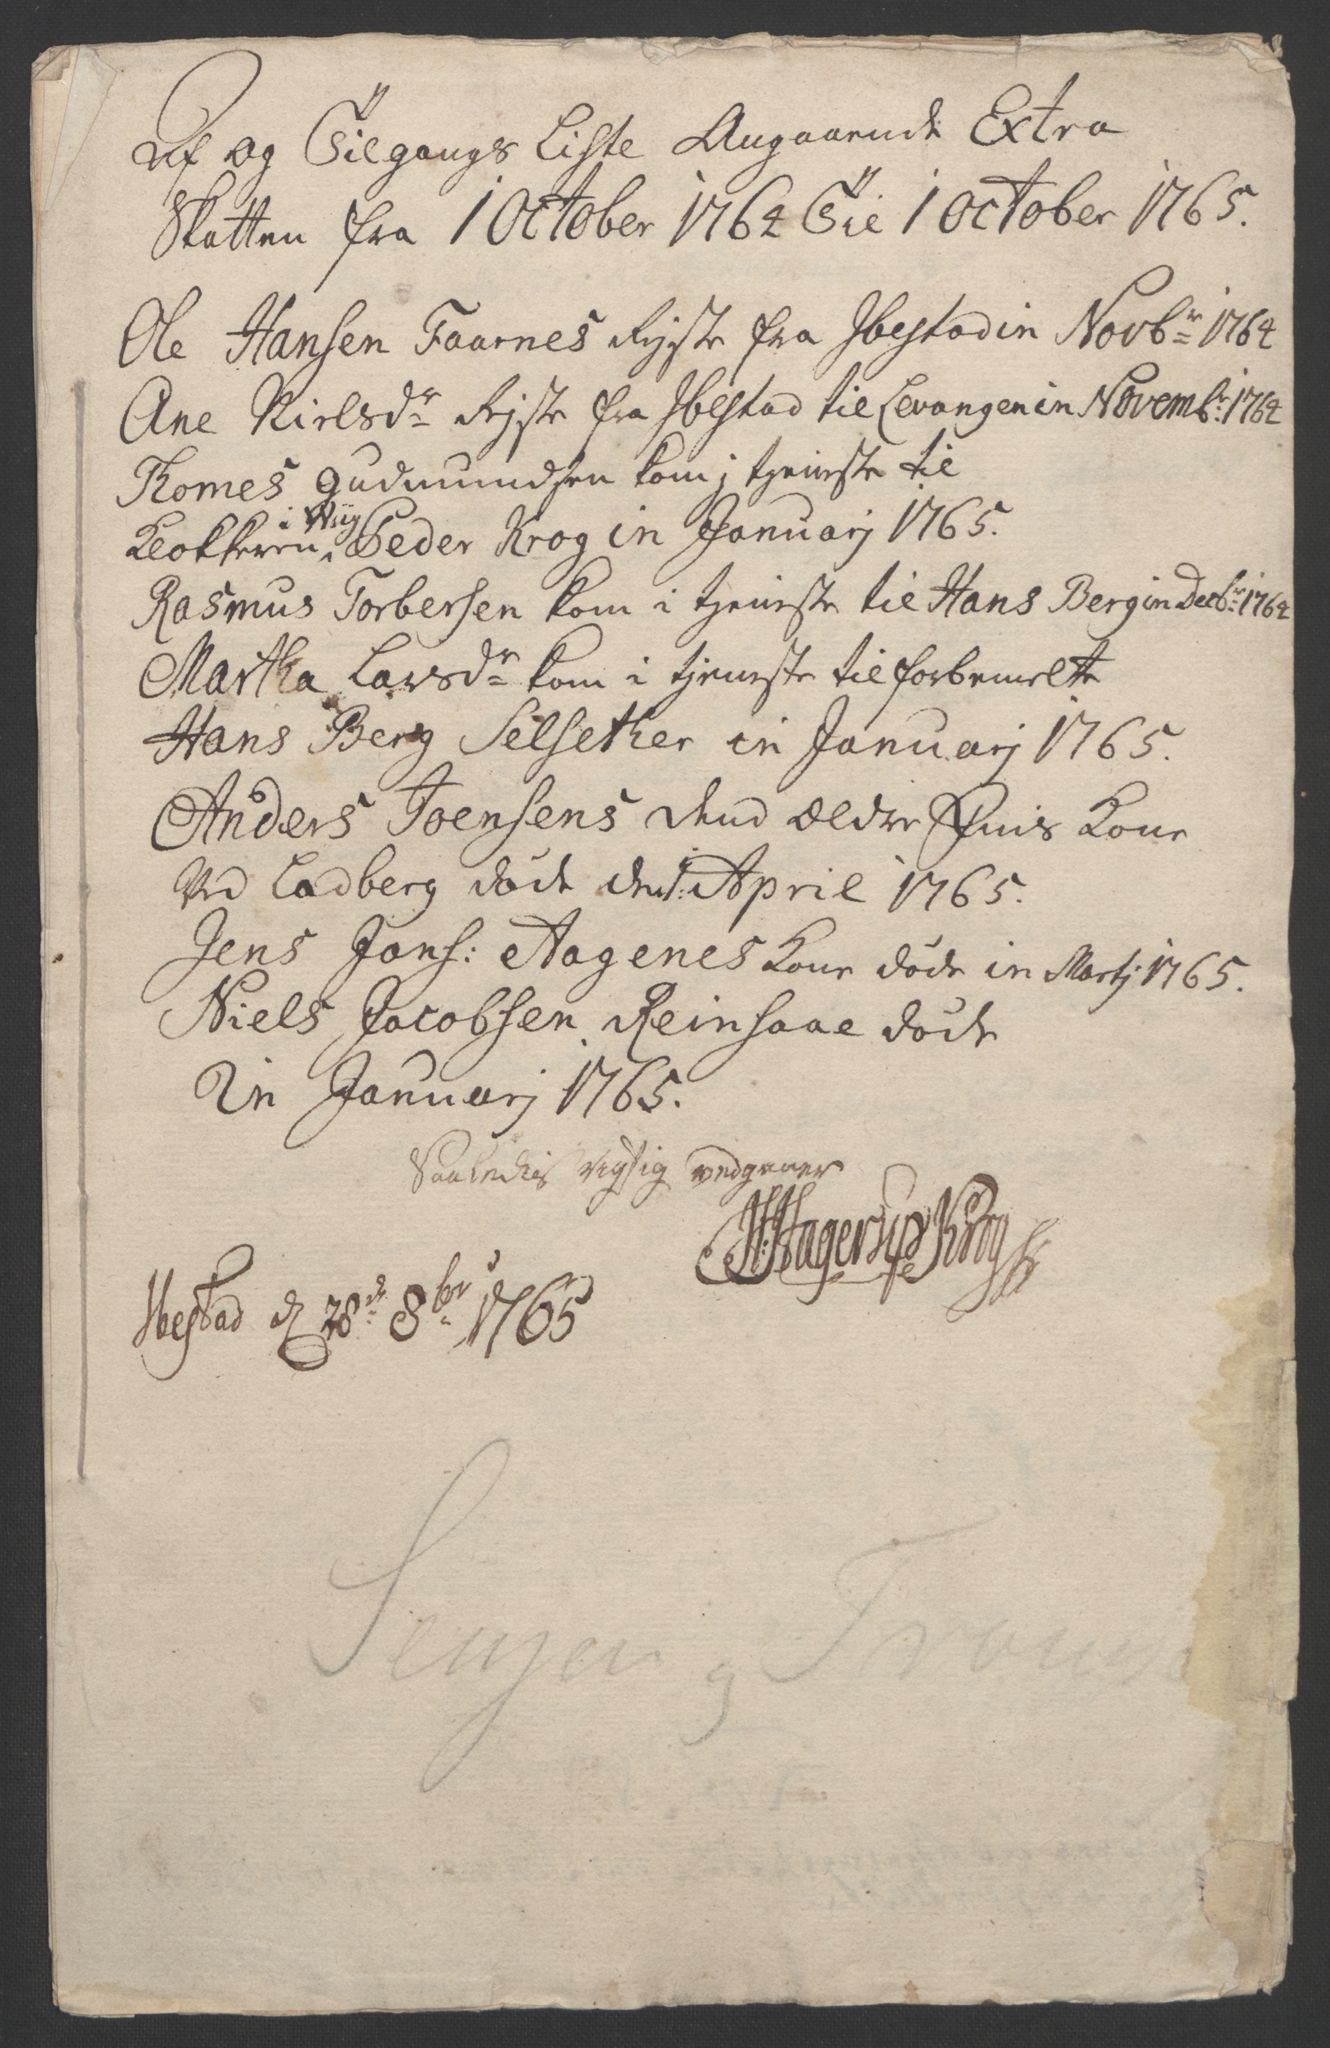 Af og Tilgangs Liste Angaaende Extra
Skatten fra 1 October 1764 Til 1 October 1765.
Ole Hansen Faarnes Rejste fra Ibestad in Novbr 1764
Ane Nielsdr Rejste fra Ibestad til Levangen in Novembr: 1764
Thomes Gudmundsen kom j tjeniste til
Klokkeren i Wiig Peder Krog in Januarj 1765.
Rasmus Torbersen kom i tjeniste til Hans Berg in Decbr: 1764
Martha Larsdr kom i tjeneste til forbemelte
Hans Berg Selsether in Januarj 1765.
Anders Joensens dend ældre Finis Kone
ved Ladberg døde den 1: April 1765.
Jens Jons: Aagenes Kone døde in Martj 1765.
Niels Jacobsen Reinsaae døde
in Januarj 1765.
Saaledis rigtig vedgaaer
H: Hagerup Krog
Ibestad d 28de 8br 1765
Senjen og Tromsø